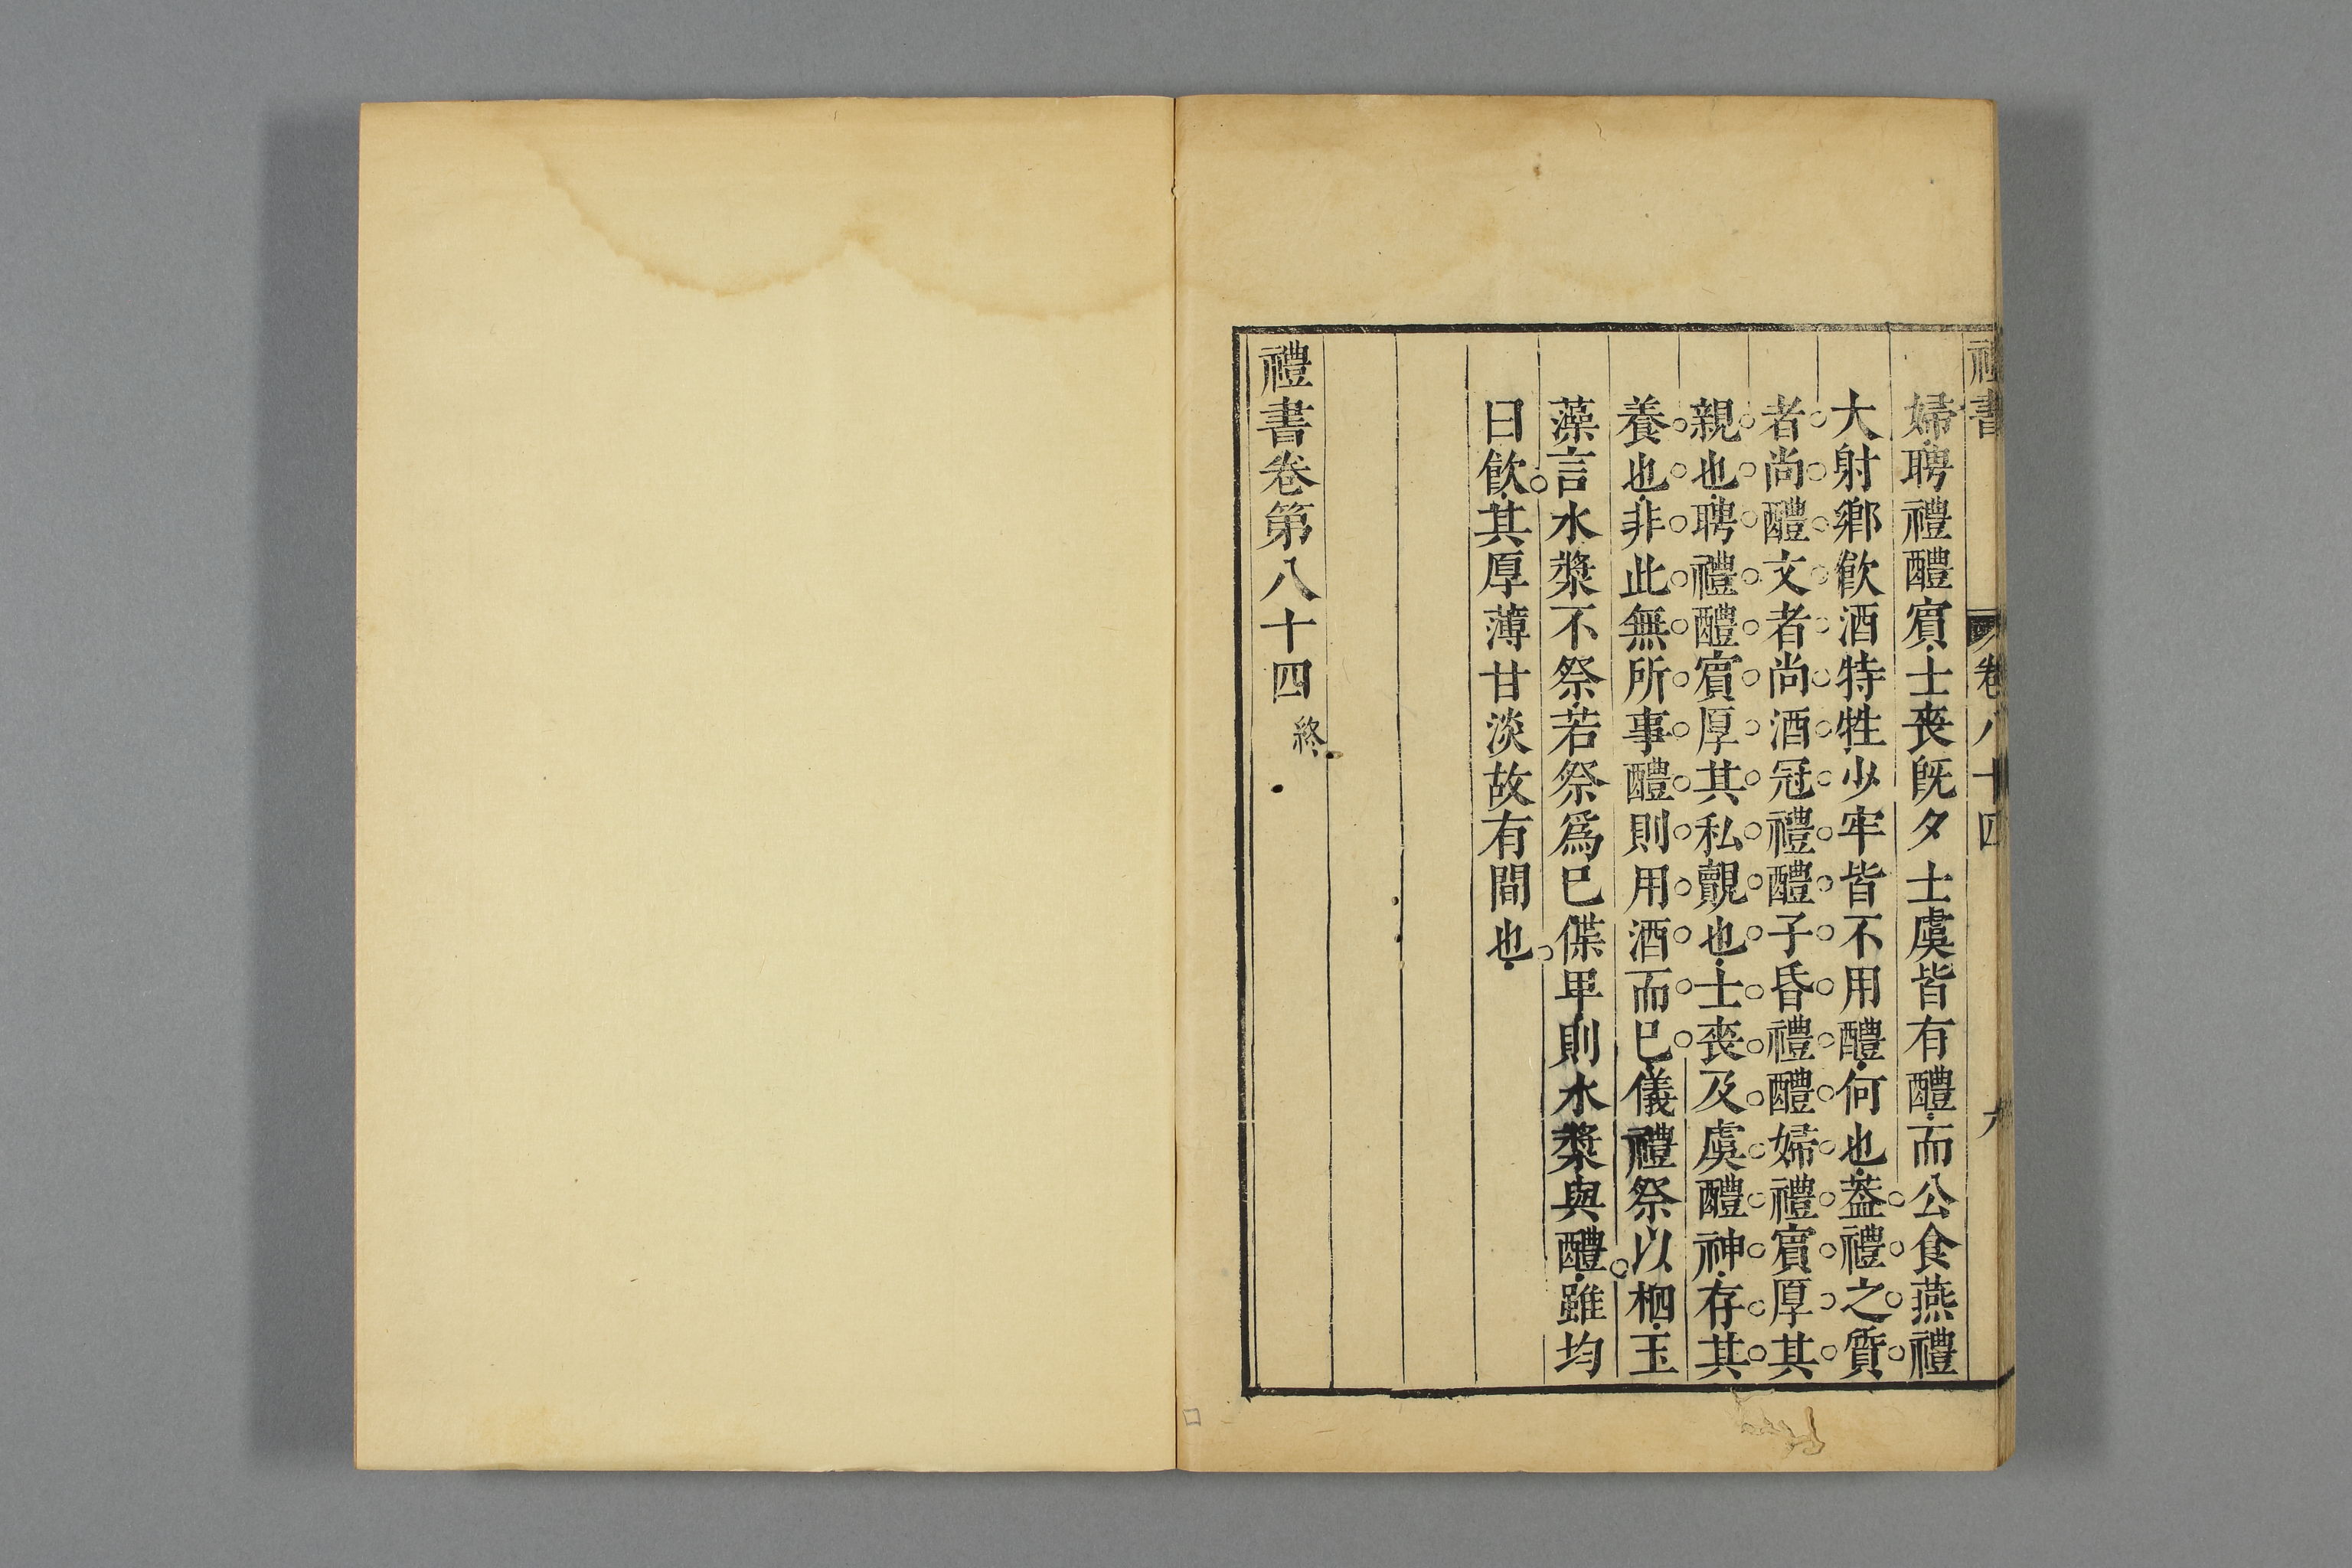 禮書 卷八十四 六
婦聘禮醴賔士喪旣夕士虞皆有醴而公食燕禮
大射鄉飮酒特牲少牢皆不用醴何也葢禮之質
者尚醴文者尚酒冠禮醴子昏禮醴婦禮賔厚其
親也聘禮醴賔厚其私覿也士喪及虞醴神存其
養也非此無所事醴則用酒而巳儀禮祭以柶玉
藻言水漿不祭若祭爲巳偞𤰞則水漿與醴雖均
曰飮其厚薄甘淡故有間也
禮書卷第八十四終